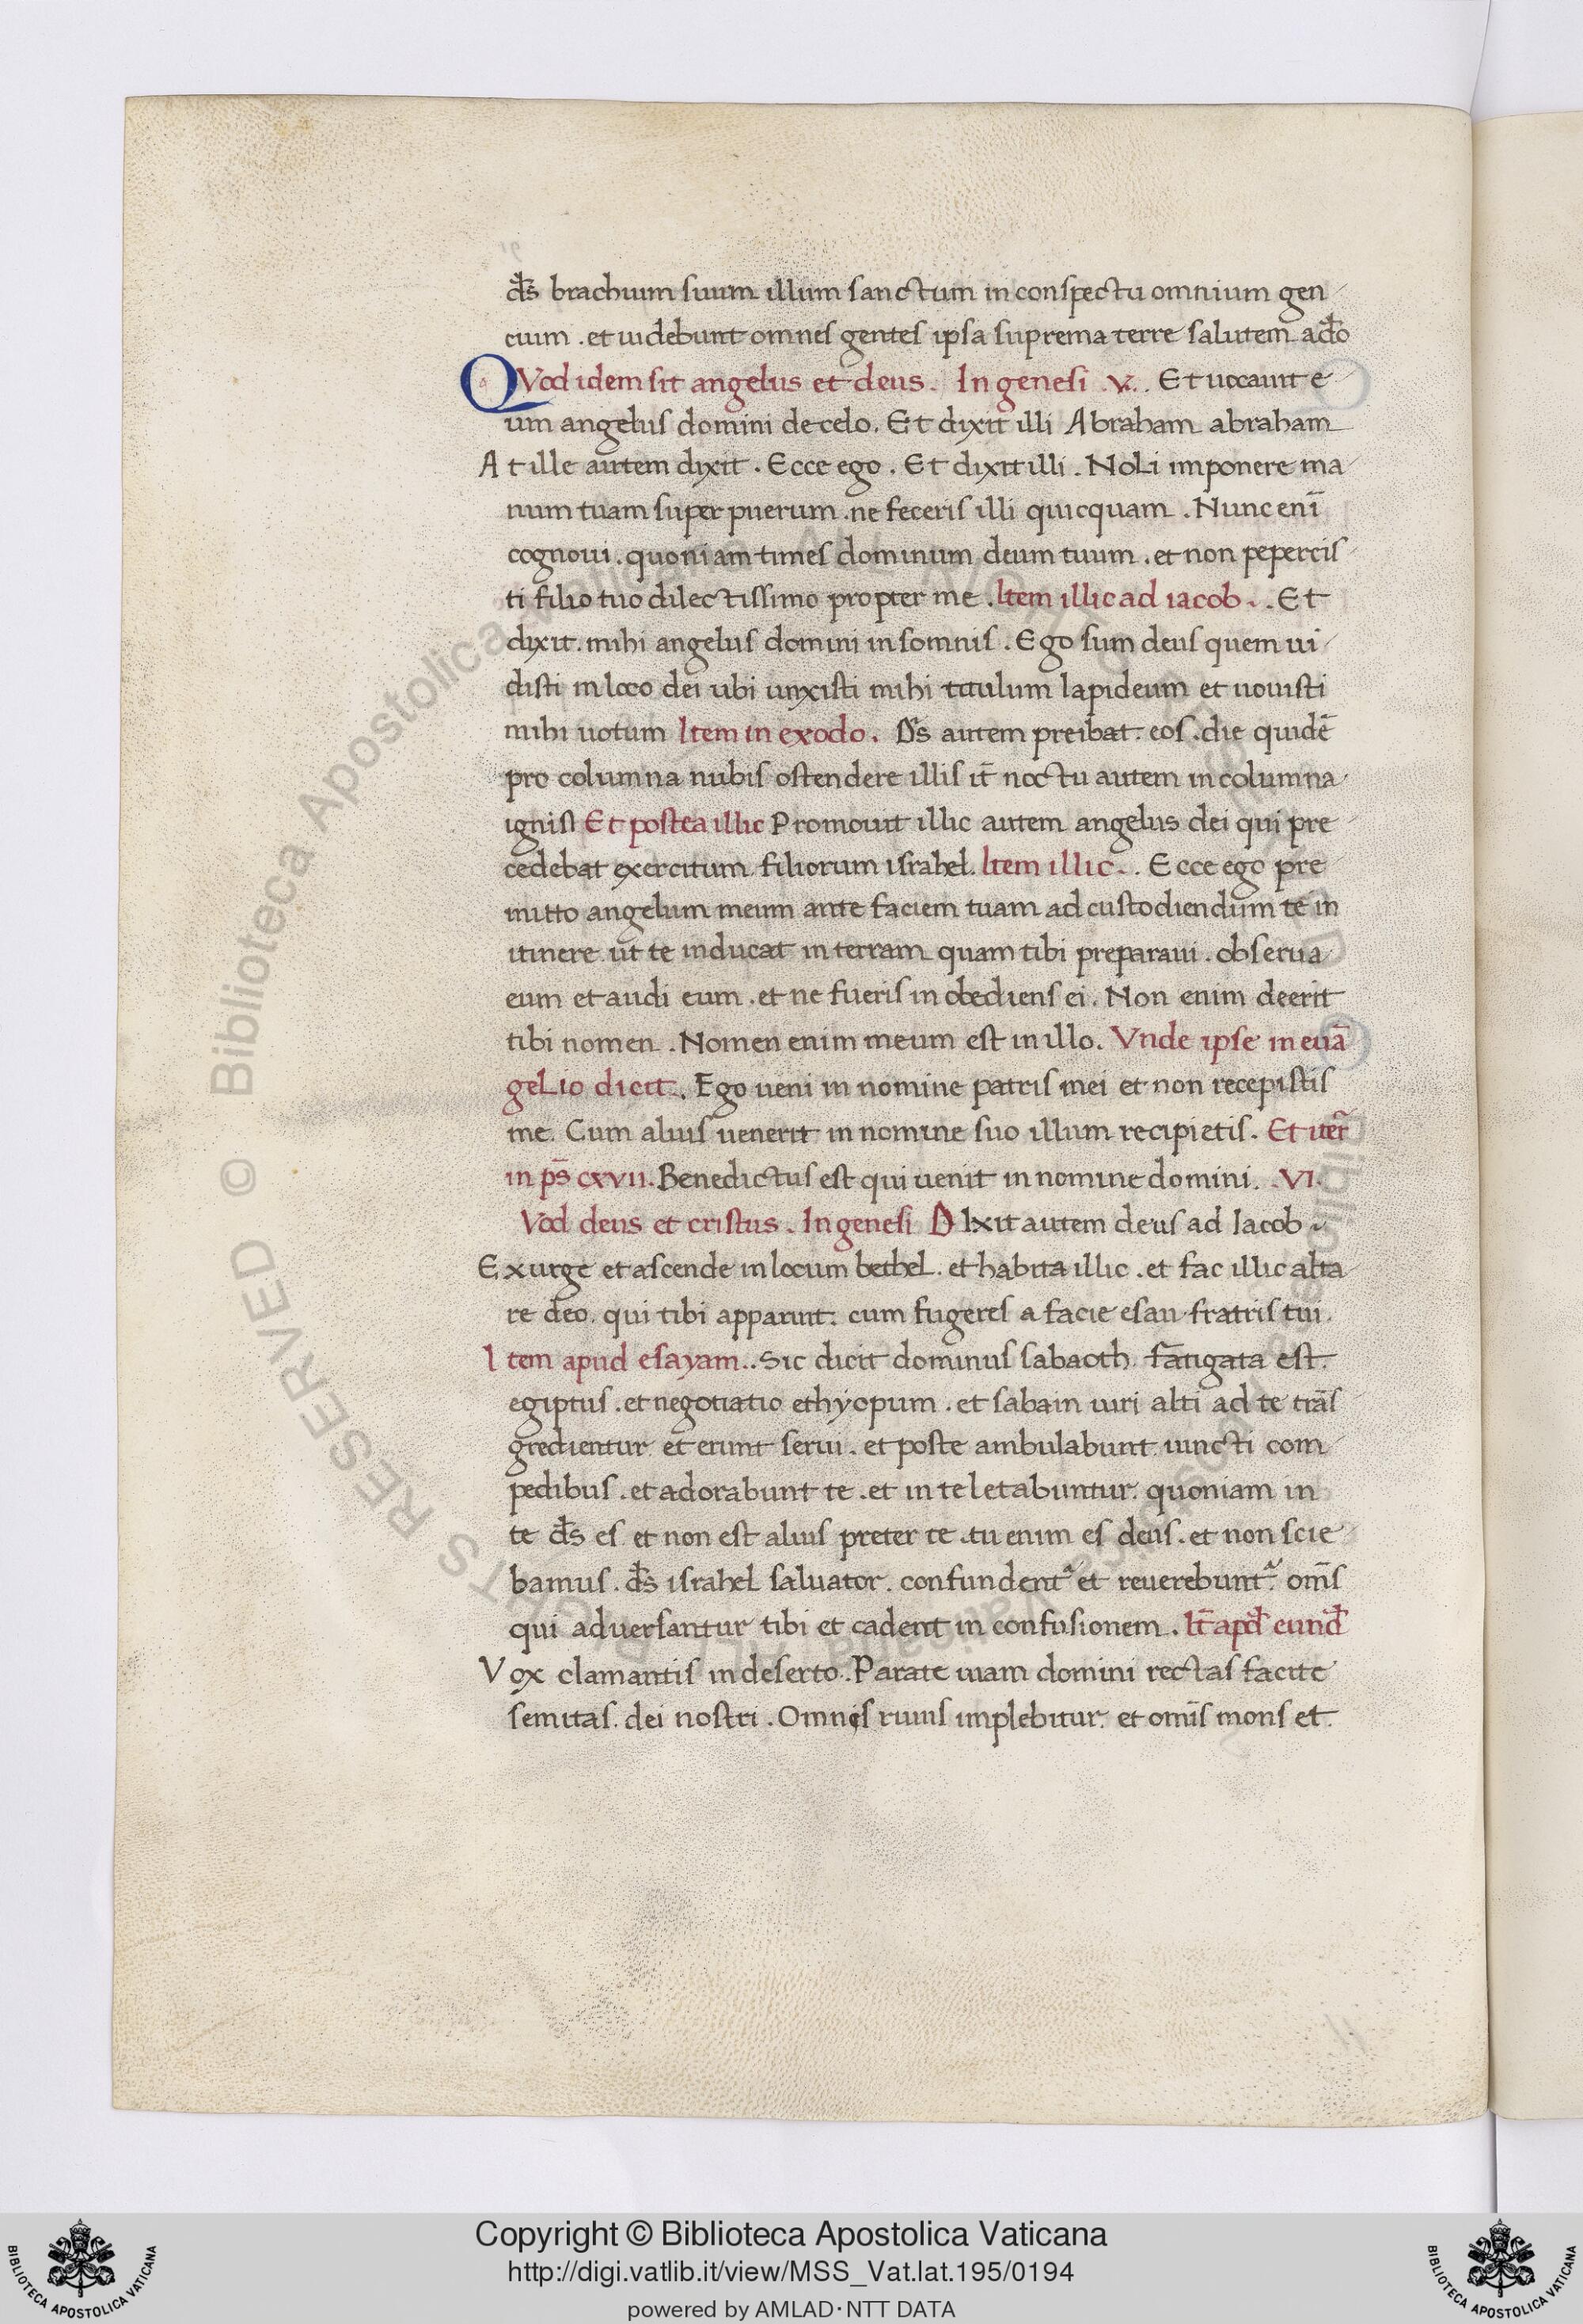 dūs brachium suum illum sanctum in conspectu omnium gen
cium . et uidebunt omnes gentes ipsa suprema terre salutem a do
QVod idem sit angelus et deus . In genesi .v. . Et uocauit e
um angelus domini de celo . Et dixit illi Abraham abraham
At ille autem dixit . Ecce ego . Et dixit illi . Noli imponere ma
num tuam super puerum . ne feceris illi quicquam . Nunc enī
cognoui . quoniam times dominum deum tuum . et non pepercis
ti filio tuo dilectissimo propter me . Item illic ad iacob . . Et
dixit . mihi angelus domini in somnis . Ego sum deus quem ui
disti in loco dei ubi unxisti mihi titulum lapideum et uouisti
mihi uotum Item in exodo . D̄s autem preibat . eos . die quidē
pro columna nubis ostendere illis it̄ noctu autem in columna
ignis Et postea illic Promouit illic autem angelus dei qui pre
cedebat exercitum filiorum israhel . Item illic . . Ecce ego pre
mitto angelum meum ante faciem tuam ad custodiendum te in
itinere ut te inducat in terram quam tibi preparaui . obserua
eum et audi eum . et ne fueris in obediens ei . Non enim deerit
tibi nomen . Nomen enim meum est in illo . Vnde ipse in euā
gelio dicit . Ego ueni in nomine patris mei et non recepistis
me . Cum alius uenerit in nomine suo illum recipietis . Et iter̄
in ps̄ cxvii . Benedictus est qui uenit in nomine domini . .VI.
Vod deus et cristus . In genesi DIxit autem deus ad Iacob .
Exurge et ascende in locum bethel . et habita illic . et fac illic alta
re deo . qui tibi apparuit . cum fugeres a facie esau fratris tui .
Item apud esayam . . Sic dicit dominus sabaoth . fatigata est .
egiptus . et negotiatio ethyopum . et sabain uiri alti ad te trās
gredientur et erunt serui . et poste ambulabunt uincti com
pedibus . et adorabunt te . et in te letabuntur . quoniam in
te ds̄ es et non est alius preter te . tu enim es deus . et non scie
bamus . ds̄ israhel saluator . confundent᷑ et reuerebunt᷑ . om̄s
qui aduersantur tibi et cadent in confusionem . It̄ apd̄ eund̄
Vox clamantis in deserto . Parate uiam domini rectas facite
semitas . dei nostri . Omnis riuus implebitur . et om̄is mons et .
© Biblioteca Apostolica Vaticana
RIGHTS RESERVED
Copyright © Biblioteca Apostolica Vaticana
http://digi.vatlib.it/view/MSS_Vat.lat.195/0194
powered by AMLAD·NTT DATA
BIBLIOTECA APOSTOLICA VATICANA
BIBLIOTECA APOSTOLICA VATICANA